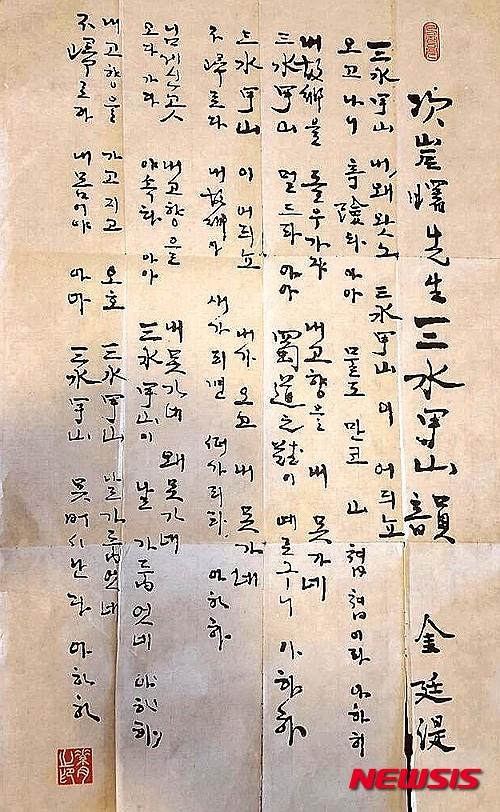 次岸曙先生三水甲山韻 金廷湜
三水甲山 내 왜 왓노 三水甲山이 어듸뇨
오고나니 奇險타 아아 물도 만코 山쳡쳡이라 아하하
내 故鄕을 돌우가쟈 내 고향을 내 못가네
三水甲山 멀드라 아아 蜀道之難이 예로구나 아하하
三水甲山이 어듸뇨 내가 오고 내 못가네
不歸로다 내 故鄕아 새가 되면 떠가리라 아하하
님 계신 곳 내 고향을 내 못가네 왜 못가네
오다 가다 야속타 아아 三水甲山이 날 가둡엇네 아하하
내 고향을 가고지고 오호 三水甲山 날 가둡엇네
不歸로다 내 몸이야 아아 三水甲山 못 버서난다 아하하
NEWSIS